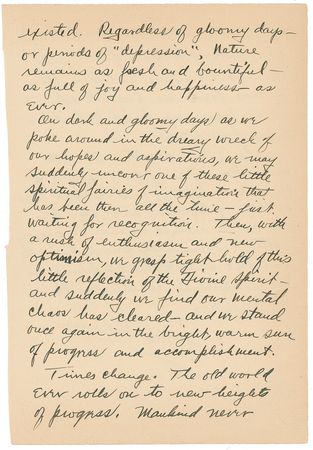 existed. Regardless of gloomy days—
or periods of "depression", Nature
remains as fresh and bountiful—
as full of joy and happiness—as
ever.
On dark and gloomy days, as we
poke around in the dreary wreck of
our hopes and aspirations, we may
suddenly uncover one of these little
spiritual fairies of imagination that
has been there all the time—just
waiting for recognition. Then, with
a rush of enthusiasm and new
optimism, we grasp tight hold of this
little reflection of the Divine Spirit—
and suddenly we find our mental
chaos has cleared—and we stand
once again in the bright, warm sun
of progress and accomplishment.
Times change. The old world
ever rolls on to new heights
of progress. Mankind never